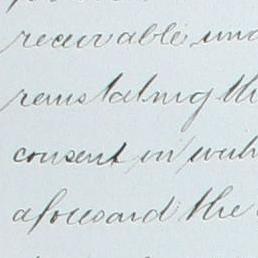 receivable und
reinstating th
consent in writ
aforesaid the